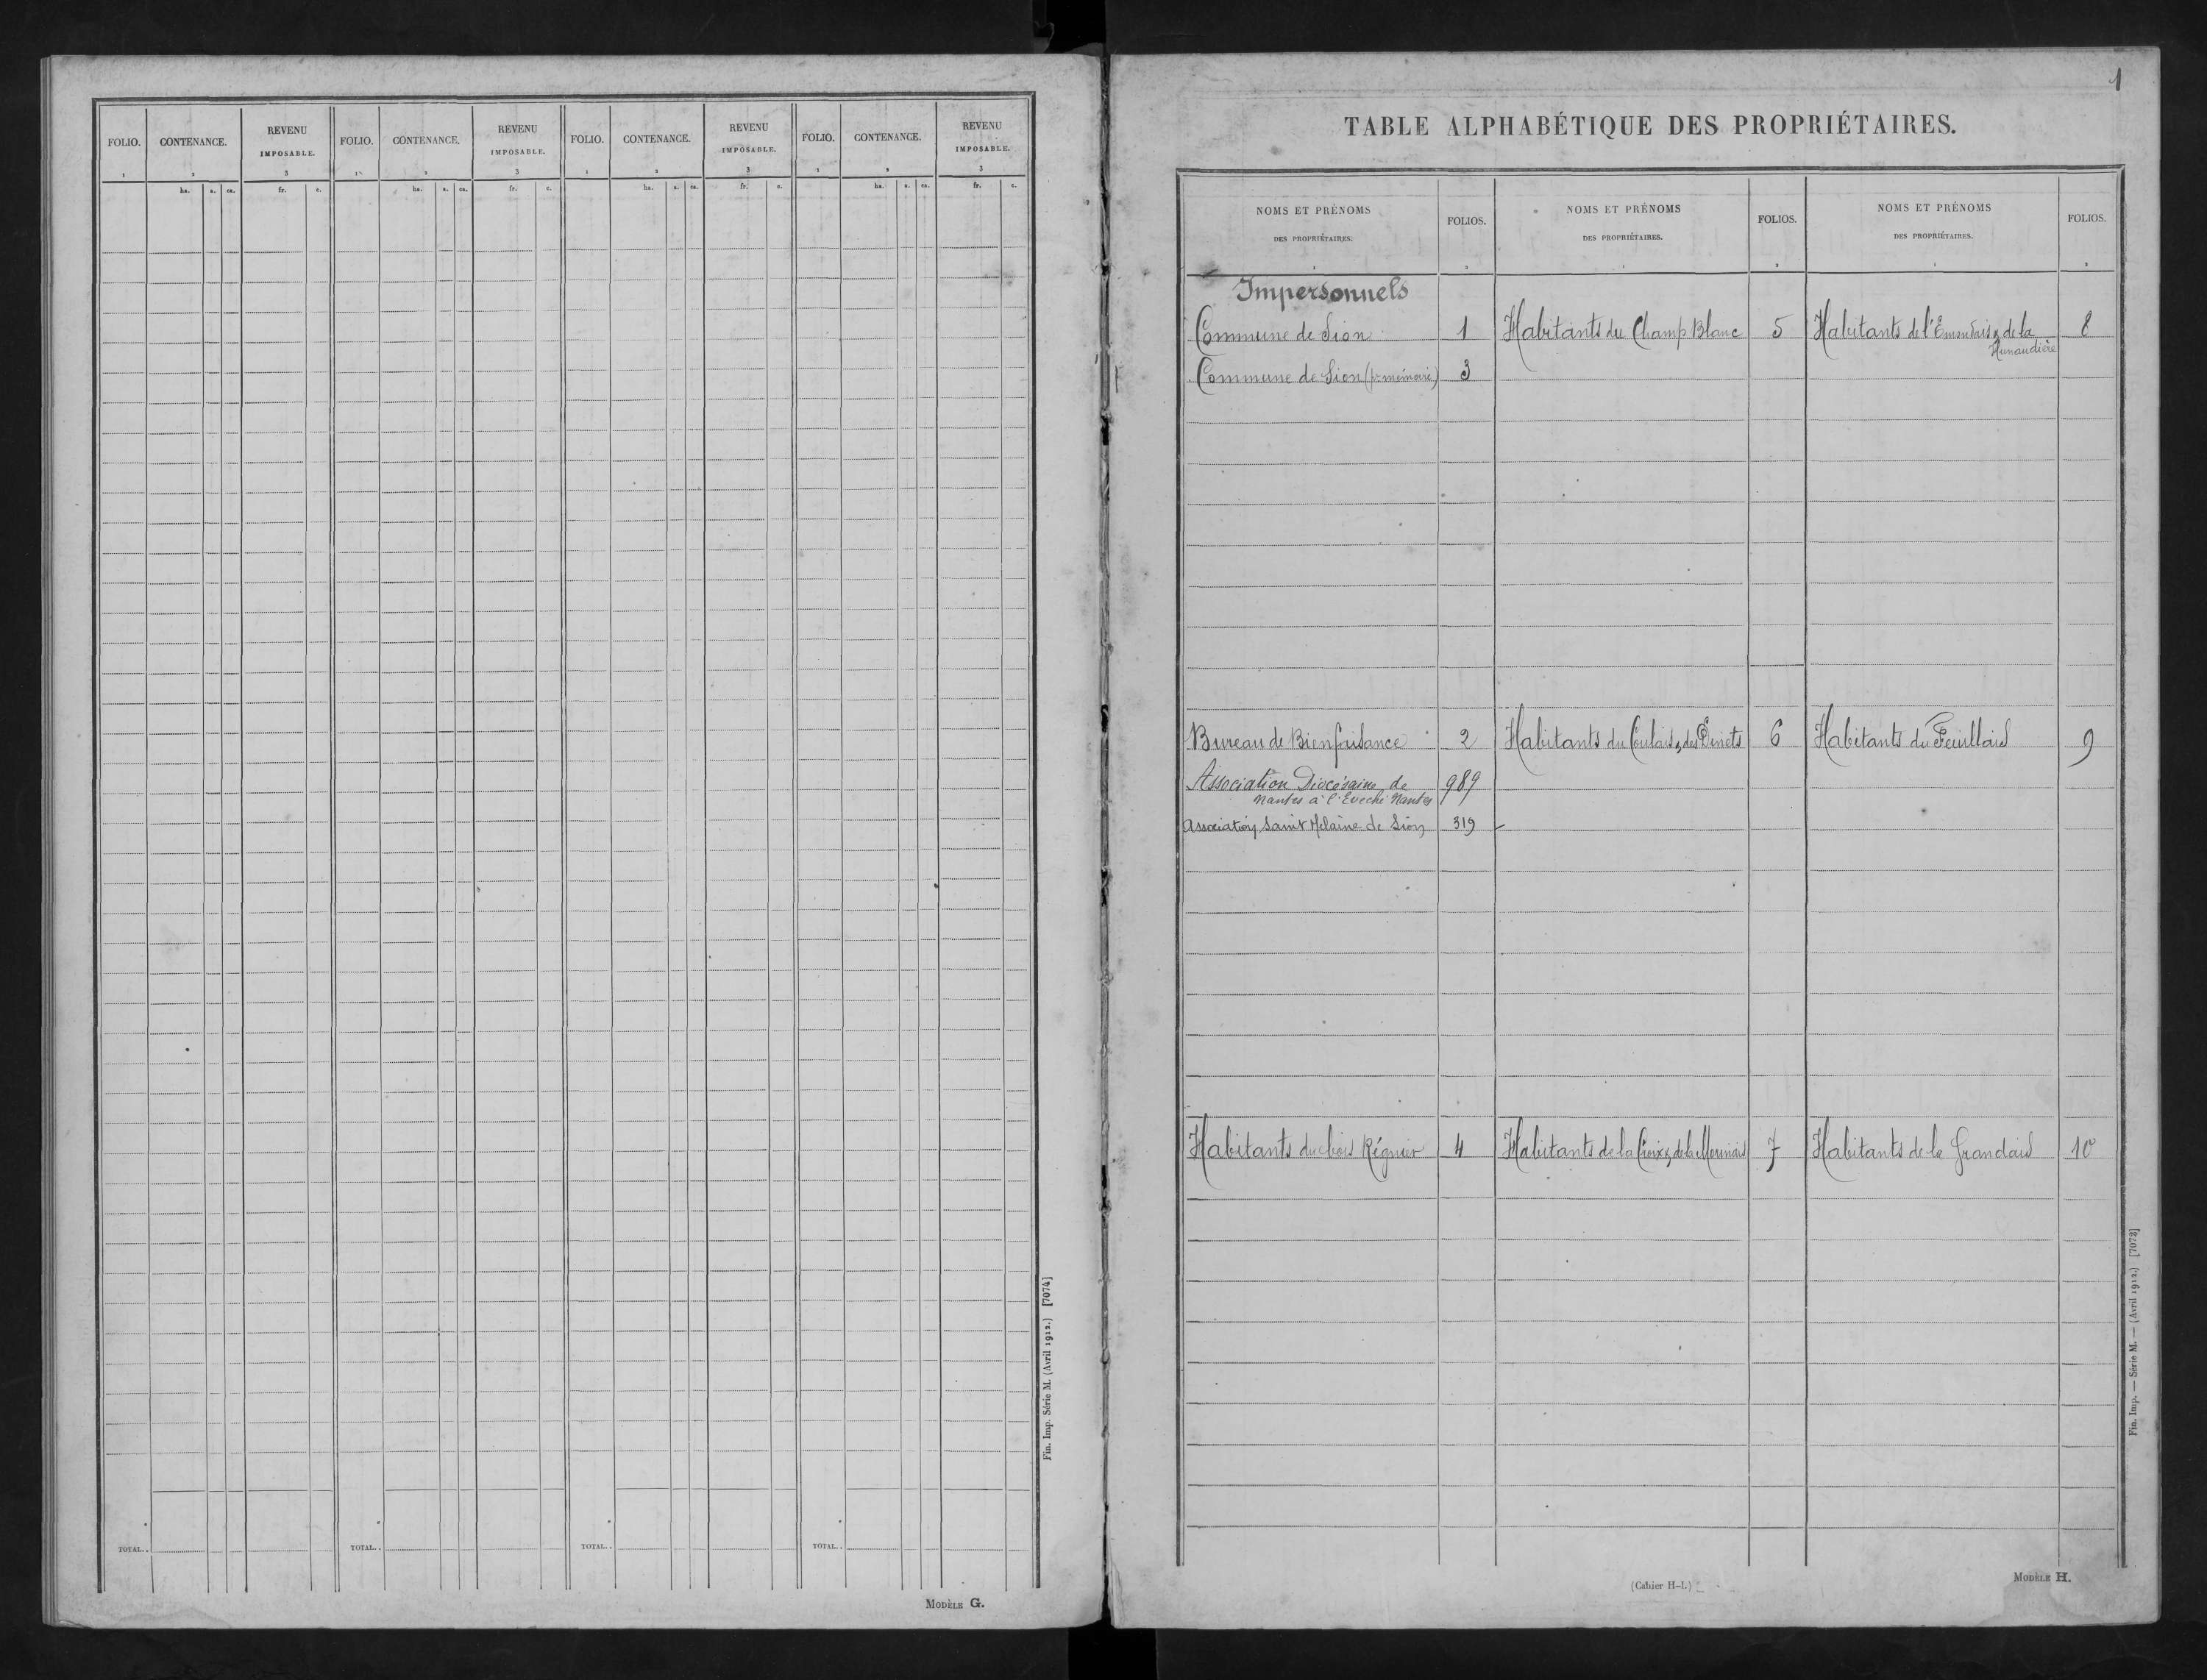 FOLIO. CONTENANCE. REVENU IMPOSABLE. FOLIO. CONTENANCE. REVENU IMPOSABLE. FOLIO. CONTENANCE. REVENU IMPOSABLE. FOLIO. CONTENANCE. REVENU IMPOSABLE.
1 2 3 1 2 3 1 2 3 1 2 3
ha. a. ca. fr. c. ha. a. ca. fr. c. ha. a. ca. fr. c. ha. a. ca. fr. c.
TOTAL.. TOTAL.. TOTAL.. TOTAL..
Fin. Imp. Série M. (Avril 1912.) [7074]
MODÈLE G.
1
TABLE ALPHABÉTIQUE DES PROPRIÉTAIRES.
NOMS ET PRÉNOMS DES PROPRIÉTAIRES. FOLIOS. NOMS ET PRÉNOMS DES PROPRIÉTAIRES. FOLIOS. NOMS ET PRÉNOMS DES PROPRIÉTAIRES. FOLIOS.
1 2 1 2 1 2
Impersonnels
Commune de Sion 1 Habitants du Champ Blanc 5 Habitants de l'Emondais & de la 8
Hunaudière
Commune de Sion (pr mémoire) 3
Bureau de Bienfaisance 2 Habitants du Coulais & des 6 Habitants du Feuillais 9
Association Diocésaine de 989
Nantes à l'Evêché Nantes
Association Saint Melaine de Sion 319
Habitants du bois Régnier 4 Habitants de la Croix & de la 7 Habitants de la Grandais 10
Fin. Imp. — Série M. — (Avril 1912.) [7073]
(Cahier H-1.)
MODÈLE H.